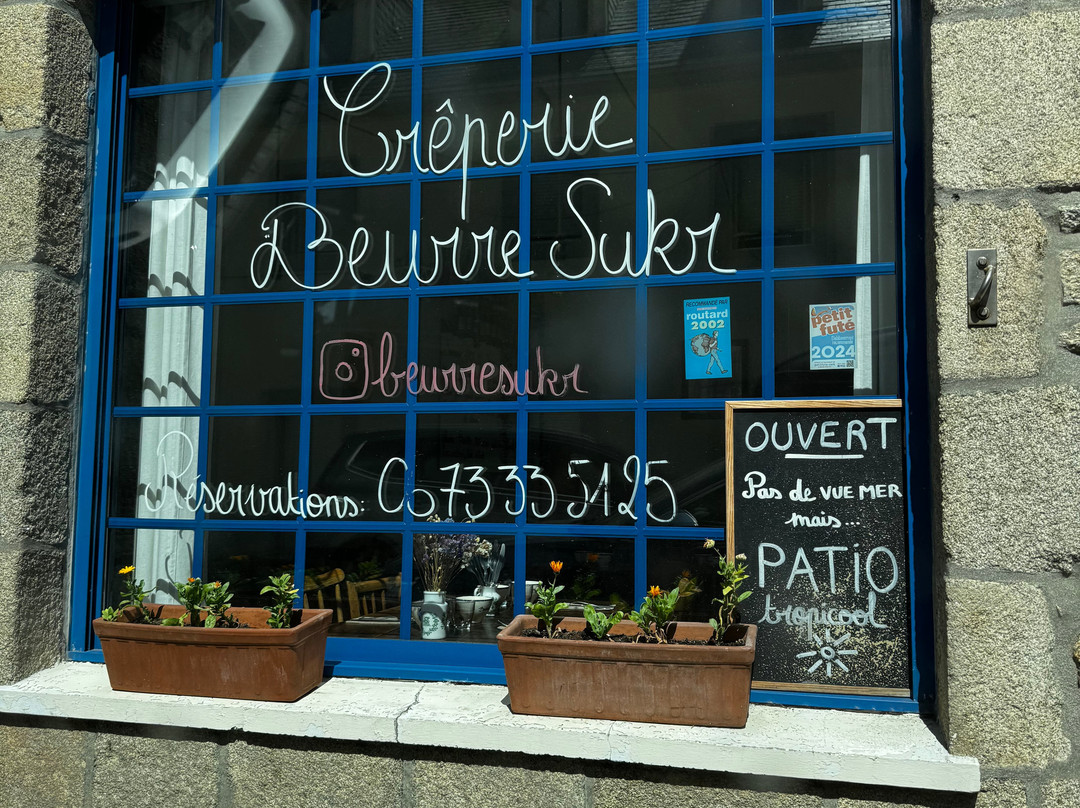 Crêperie
Beurre Sukr
beurresukr
Réservations: 06 73 33 51 25
RECOMMANDÉ PAR
routard
2002
petit
futé
2024
OUVERT
Pas de VUE MER
mais...
PATIO
tropicool